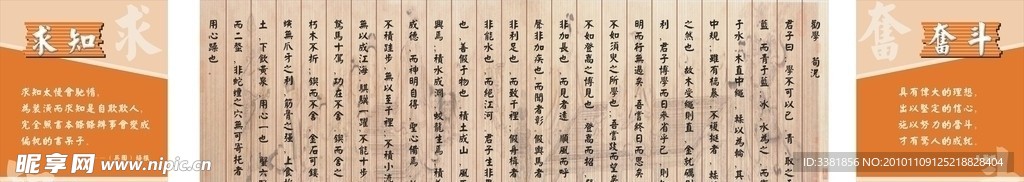 求知
求
求知太慢會死惰,
為裝潢而求知是自欺欺人,
完全照書本條條辦事會變成
偏執的書呆子。
勸學 荀況
君子曰:學不可以已 青 取之
藍,而青于藍;水為之,而
子水 木直中繩 輮以為輪 其
中規 雖有槁暴 不復挺者
之然也 故木受繩則直 金就礪
利,君子博學而日參省乎己 則
明而行無過矣 吾嘗終日而思矣
不如須臾之所學也 吾嘗跂而望
不如登高之博見也 登高而招
非加長也 而見者遠 順風而呼
聲非加疾也 而聞者彰 假輿馬者
非利足也 而致千里 假舟楫者
非能水也 而絕江河 君子生非
也 善假于物也 積土成山 風
興焉 積水成淵 蛟龍生焉 積
成德 而神明自得 聖心備焉
不積跬步 無以至千里 不積小流
無以成江海 騏驥一躍 不能十步
駑馬十駕 功在不舍 鍥而舍之
朽木不折 鍥而不舍 金石可鏤
螾無爪牙之利 筋骨之強 上食
土,下飲黃泉 用心一也 蟹六
而二螯 非蛇蟺之穴無可寄託者
用心躁也
奮
奮斗
具有偉大的理想,
出以堅定的信心,
施以努力的奮斗,
才有驚人的成就。
昵享网 www.nipic.cn
ID:3381856 NO:20101109125218828404